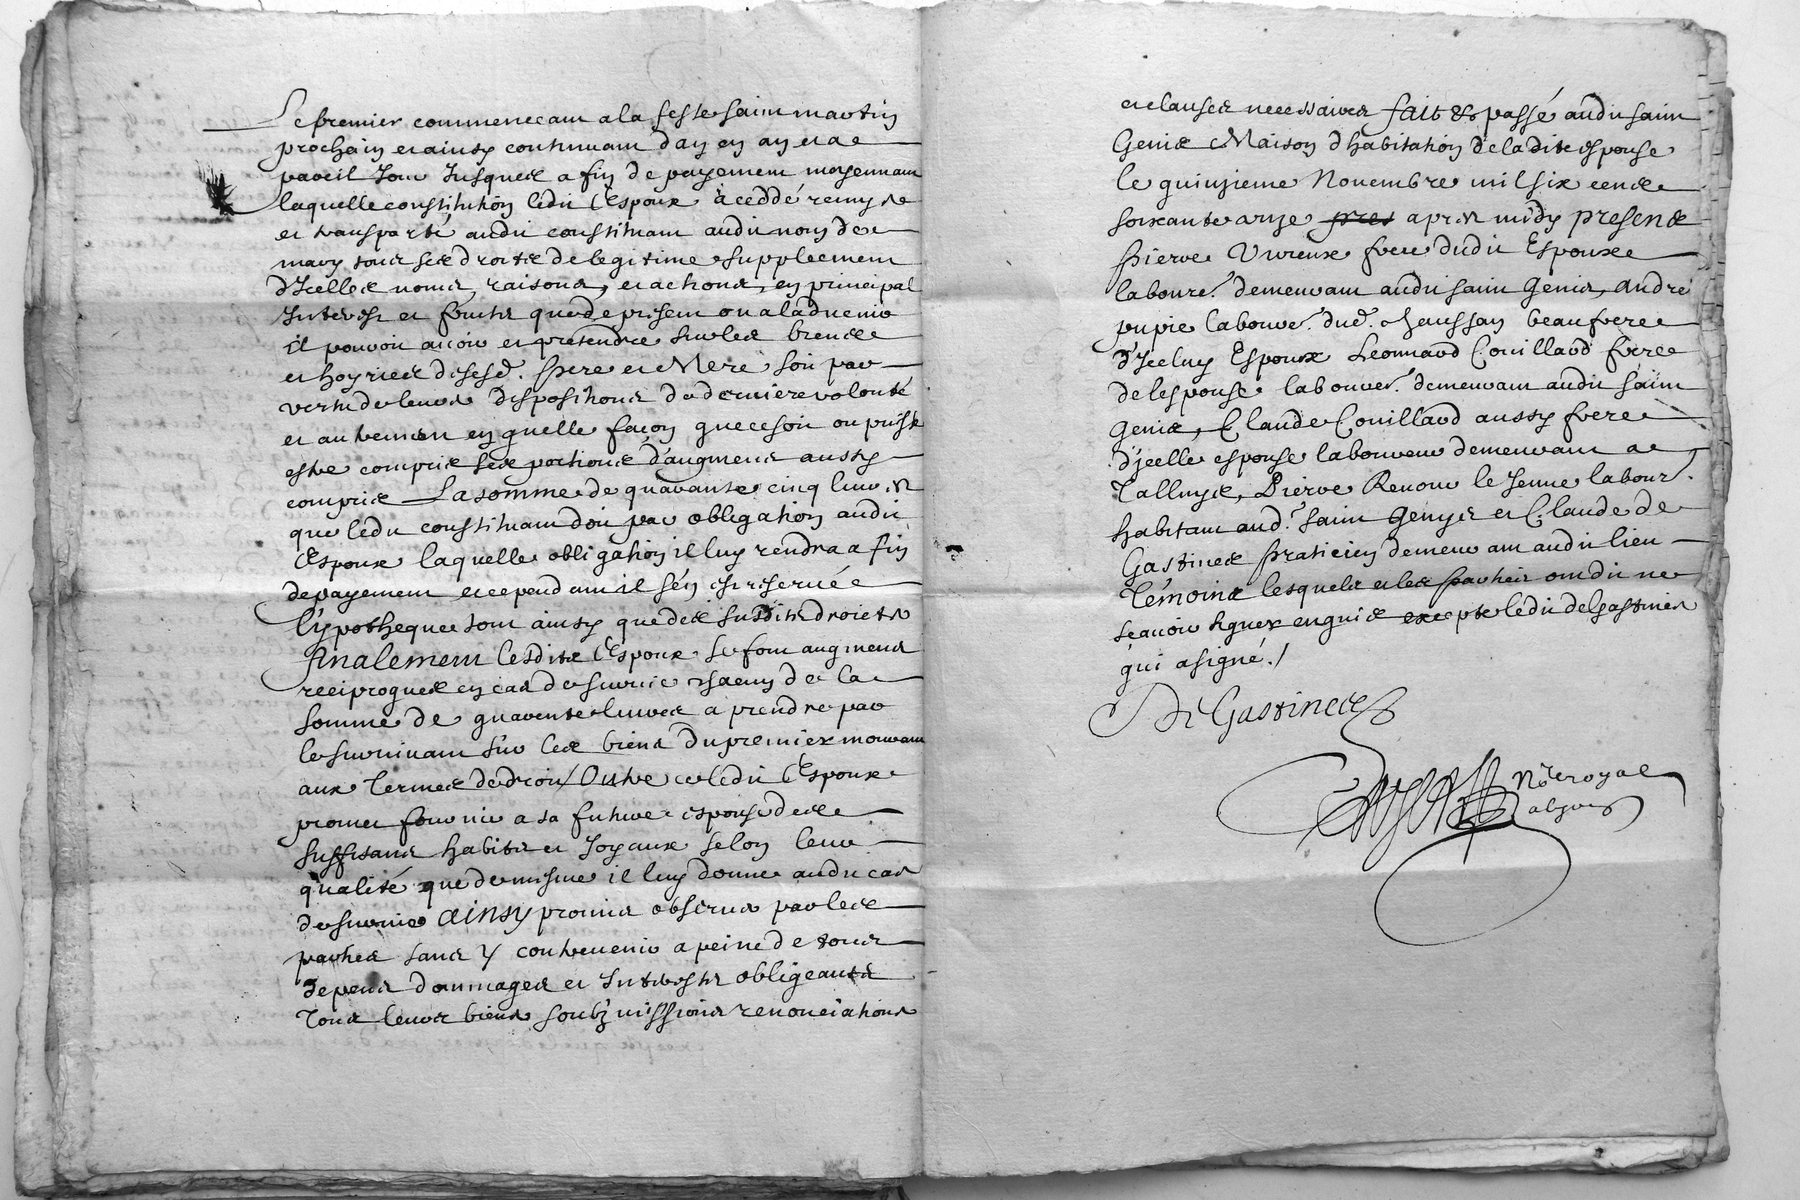 Le premier commenceant a la feste saint martin
prochain et ainsy continuant d'an en an et a
pareil Jour Jusques a fin de payement moyennant
laquelle constitution ledit Espoux a ceddé remys
et transparté audit constituant audit nom de
mary tous ses droits de legitime supplement
d'Icelle noms, raisons, et actions, en principal
Interest et fruits que de present ou a ladvenir
il pouvoit avoir et pretendre sur les biens
et hoyries de sesd. Pere et Mere soit par
vertu de leurs dispositions de derniere volonté
et autrement en quelle façon que ce soit ou puisse
estre compris ses portions d'augment aussy
compris La somme de quarante cinq livres
que ledit constituant doit par obligation audit
Espoux laquelle obligation il luy rendra a fin
de payement et cependant il s'en est reservé
l'ypotheque tout ainsy que des susdits droicts
finalement lesdits Espoux se font augment
reciproques en cas de survie scavoir de la
somme de quarente livres a prendre par
le survivant sur les biens du premier mourant
aux Termes de droit / Outre ce ledit Espoux
promet fournir a sa future espouse de
suffisans habits et Joyaux selon leur
qualité que de mesme il luy donne audit cas
de survie ainsy promis observer par les
parties sans y contrevenir a peine de tous
depens dommages et Interests obligeants
Tous leurs biens soubzmissions renonciations
et clauses necessaires fait & passé audit saint
Genis Maison d'habitation de ladite espouse
le quinzieme Novembre mil six cents
soixante onze pres apres midy presens
Pierre Vireux frere dudit Espoux
laboure.r demeurant audit saint Genis, andré
pupie laboure.r dud. Chaussan beau frere
d'Iceluy Espoux Leonnard Couillard frere
de lespouse laboure.r demeurant audit saint
Genis, Claude Couillard aussy frere
d'jcelle espouse laboureur demeurant a
Talluye, Pierre Renour le Jeune labour.r
habitant aud.t saint Genys et Claude de
Gastines Praticien demeurant audit lieu
Témoins lesquels et les parties ont dit ne
scavoir signer enquis excepte ledit deGastines
qui a signé./
De Gastines
N.re royal